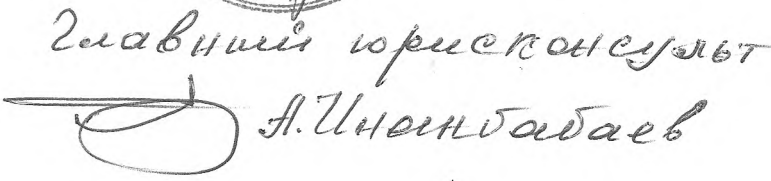 Главний юрисконсульт
А. Иномбабаев